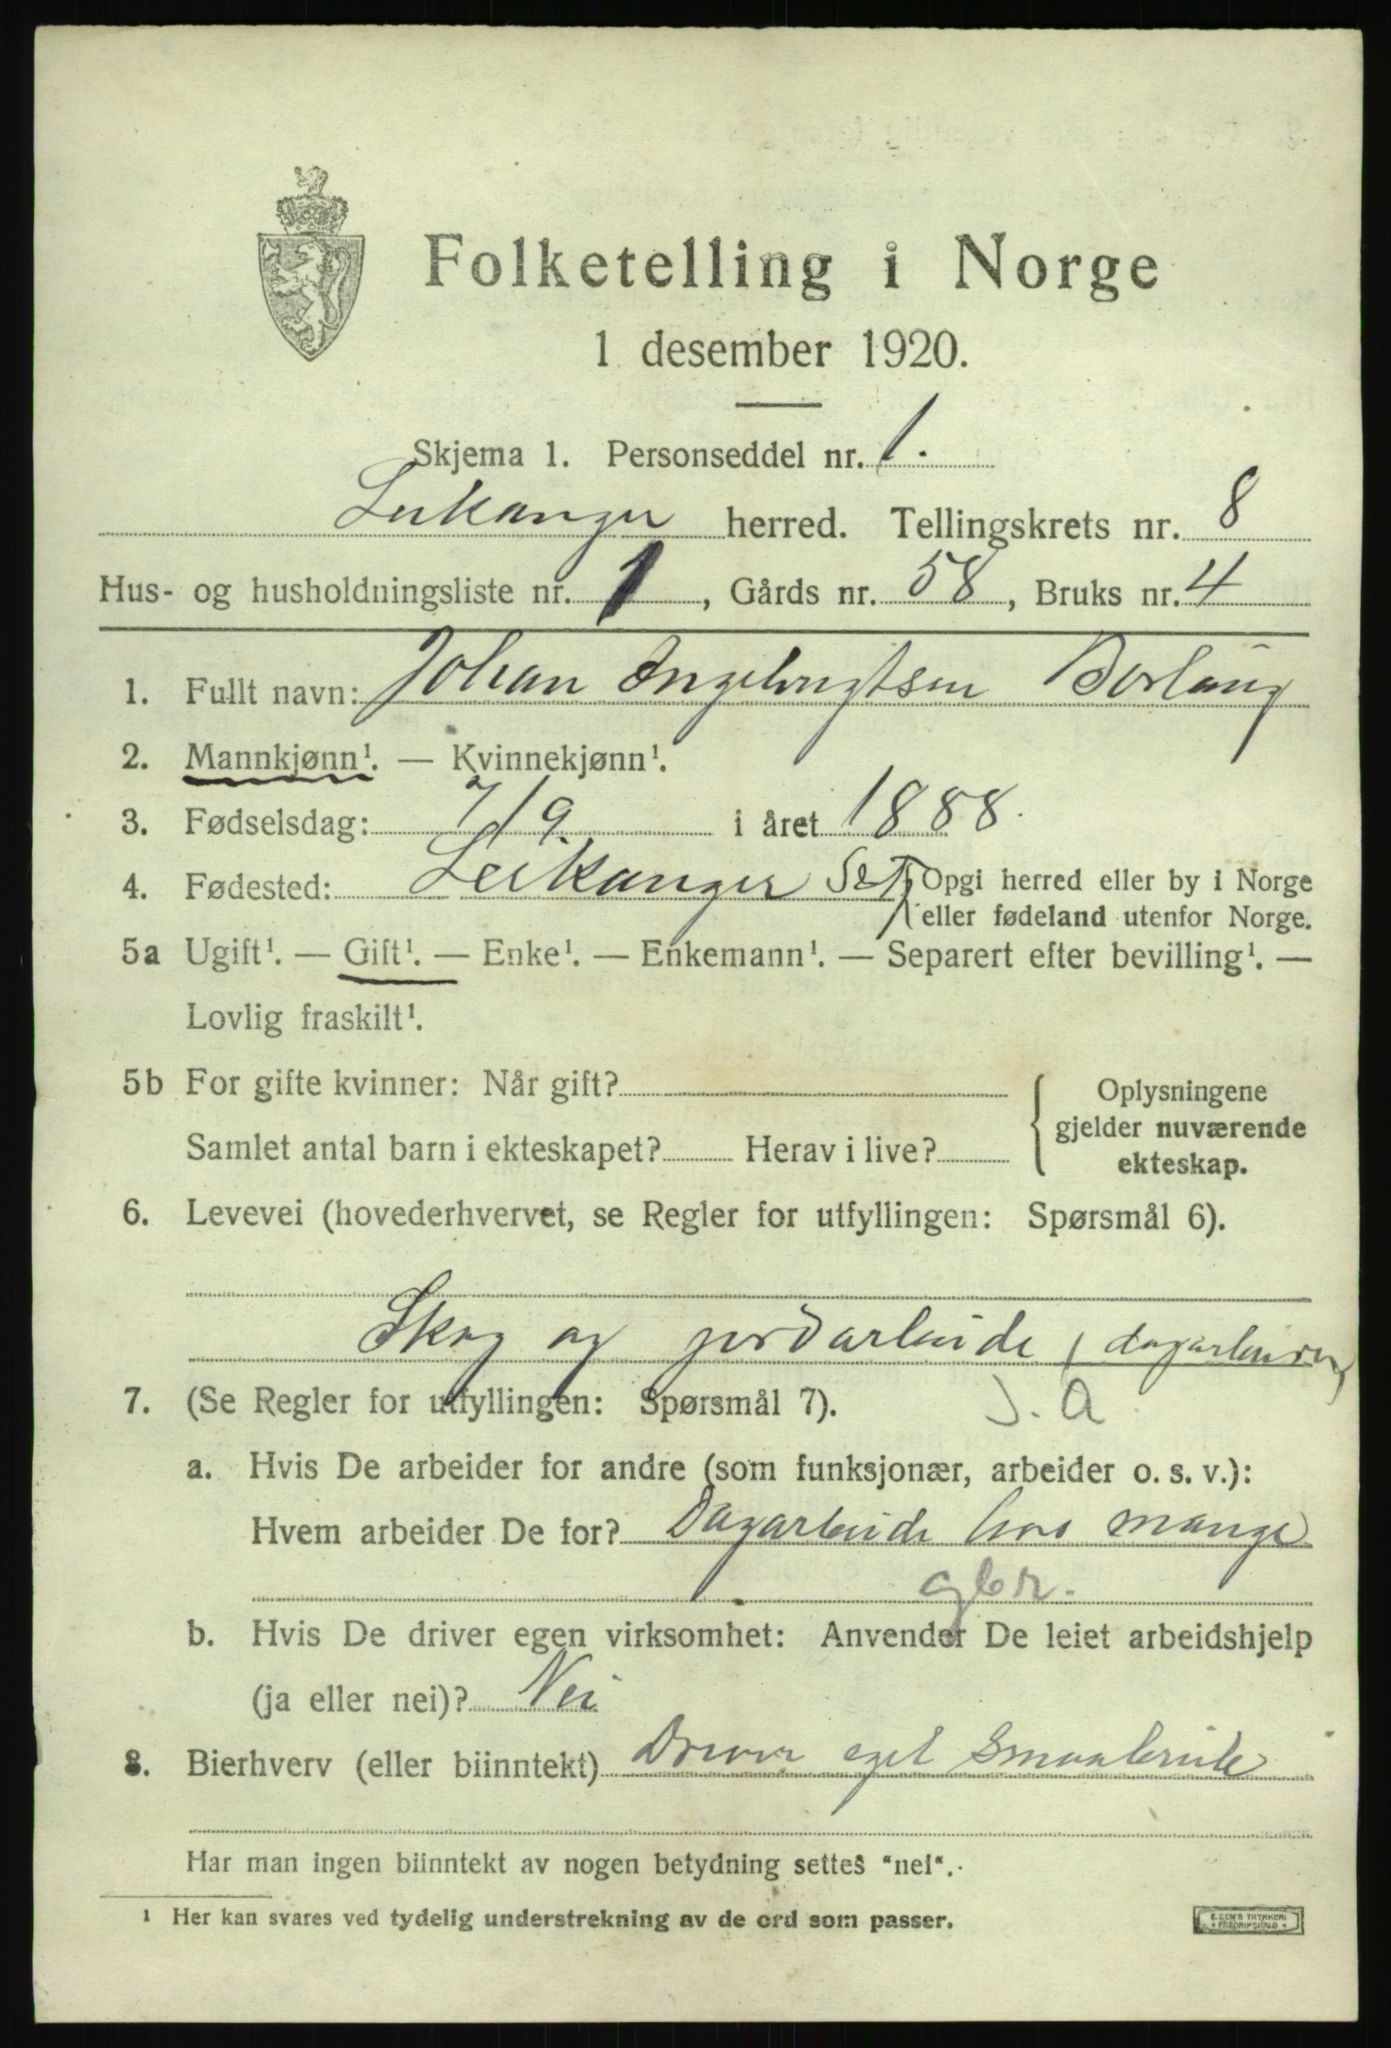 Folketelling i Norge
1 desember 1920.
Skjema 1. Personseddel nr. 1.
Leikanger herred. Tellingskrets nr. 8
Hus- og husholdningsliste nr. 1, Gårds nr. 58, Bruks nr. 4
1. Fullt navn: Johan Ingebrigtsen Borlaug
2. Mannkjønn¹. — Kvinnekjønn¹.
3. Fødselsdag: 7/9 i året 1888.
4. Fødested: Leikanger { Opgi herred eller by i Norge
eller fødeland utenfor Norge.
5a Ugift¹. — Gift¹. — Enke¹. — Enkemann¹. — Separert efter bevilling¹. —
Lovlig fraskilt¹.
5b For gifte kvinner: Når gift? { Oplysningene
gjelder nuværende
Samlet antal barn i ekteskapet? Herav i live?
ekteskap.
6. Levevei (hovederhvervet, se Regler for utfyllingen: Spørsmål 6).
Skog og jordarbeide (dagarbeider)
7. (Se Regler for utfyllingen: Spørsmål 7). J. A
a. Hvis De arbeider for andre (som funksjonær, arbeider o. s. v.):
Hvem arbeider De for? Dagarbeide hos mange
gbr.
b. Hvis De driver egen virksomhet: Anvender De leiet arbeidshjelp
(ja eller nei)? Nei
8. Bierhverv (eller biinntekt) Driver eget smaabruk
Har man ingen biinntekt av nogen betydning settes "nei".
¹ Her kan svares ved tydelig understrekning av de ord som passer.